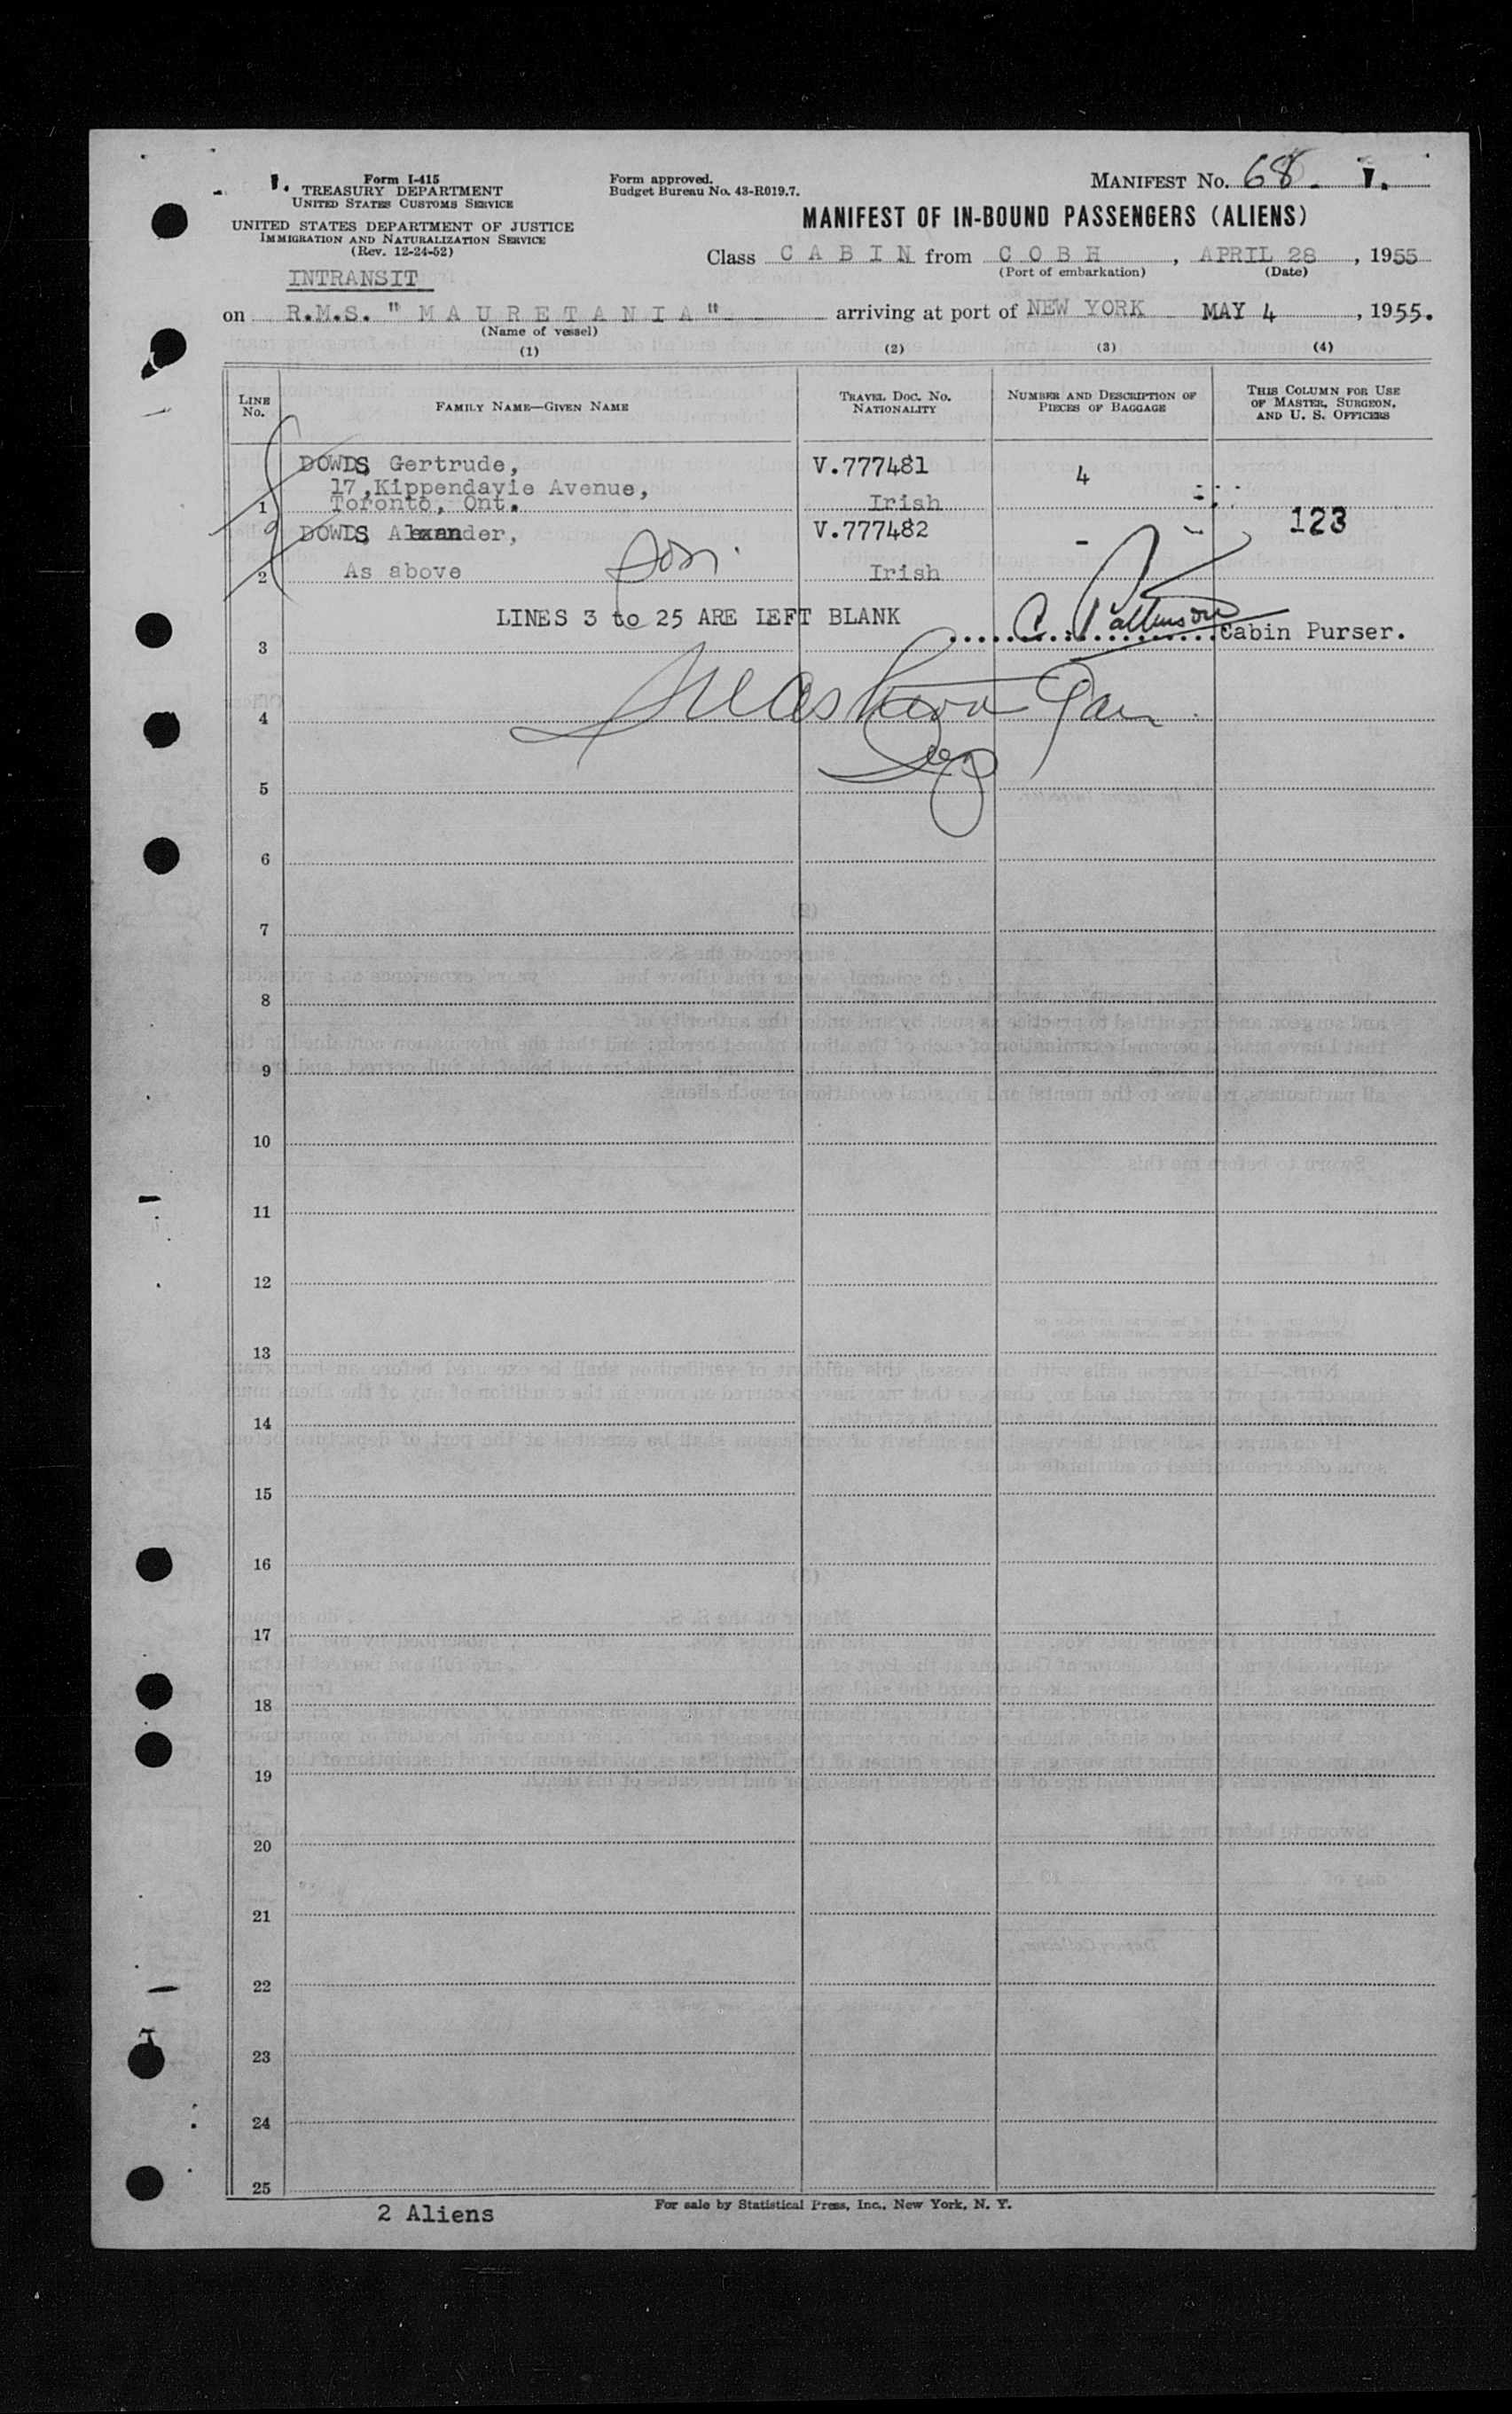 Form I-415
TREASURY DEPARTMENT
UNITED STATES CUSTOMS SERVICE
UNITED STATES DEPARTMENT OF JUSTICE
IMMIGRATION AND NATURALIZATION SERVICE
(Rev. 12-24-52)
Form approved.
Budget Bureau No. 43-R019.7.
MANIFEST NO. 68 1.
MANIFEST OF IN-BOUND PASSENGERS (ALIENS)
Class CABIN from COBH, APRIL 28, 1955
(Port of embarkation) (Date)
INTRANSIT
on R.M.S. "MAURETANIA" arriving at port of NEW YORK MAY 4, 1955.
(Name of vessel)
(1) (2) (3) (4)
LINE NO.
FAMILY NAME—GIVEN NAME
TRAVEL DOC. NO.
NATIONALITY
NUMBER AND DESCRIPTION OF
PIECES OF BAGGAGE
THIS COLUMN FOR USE
OF MASTER, SURGEON,
AND U. S. OFFICERS
DOWDS Gertrude, V.777481 4
17,Kippendavie Avenue,
1 Toronto, Ont. Irish
DOWDS Alexander, V.777482 - 123
2 As above son. Irish
LINES 3 to 25 ARE LEFT BLANK
3 Cabin Purser.
4
5
6
7
8
9
10
11
12
13
14
15
16
17
18
19
20
21
22
23
24
25
2 Aliens
For sale by Statistical Press, Inc., New York, N. Y.